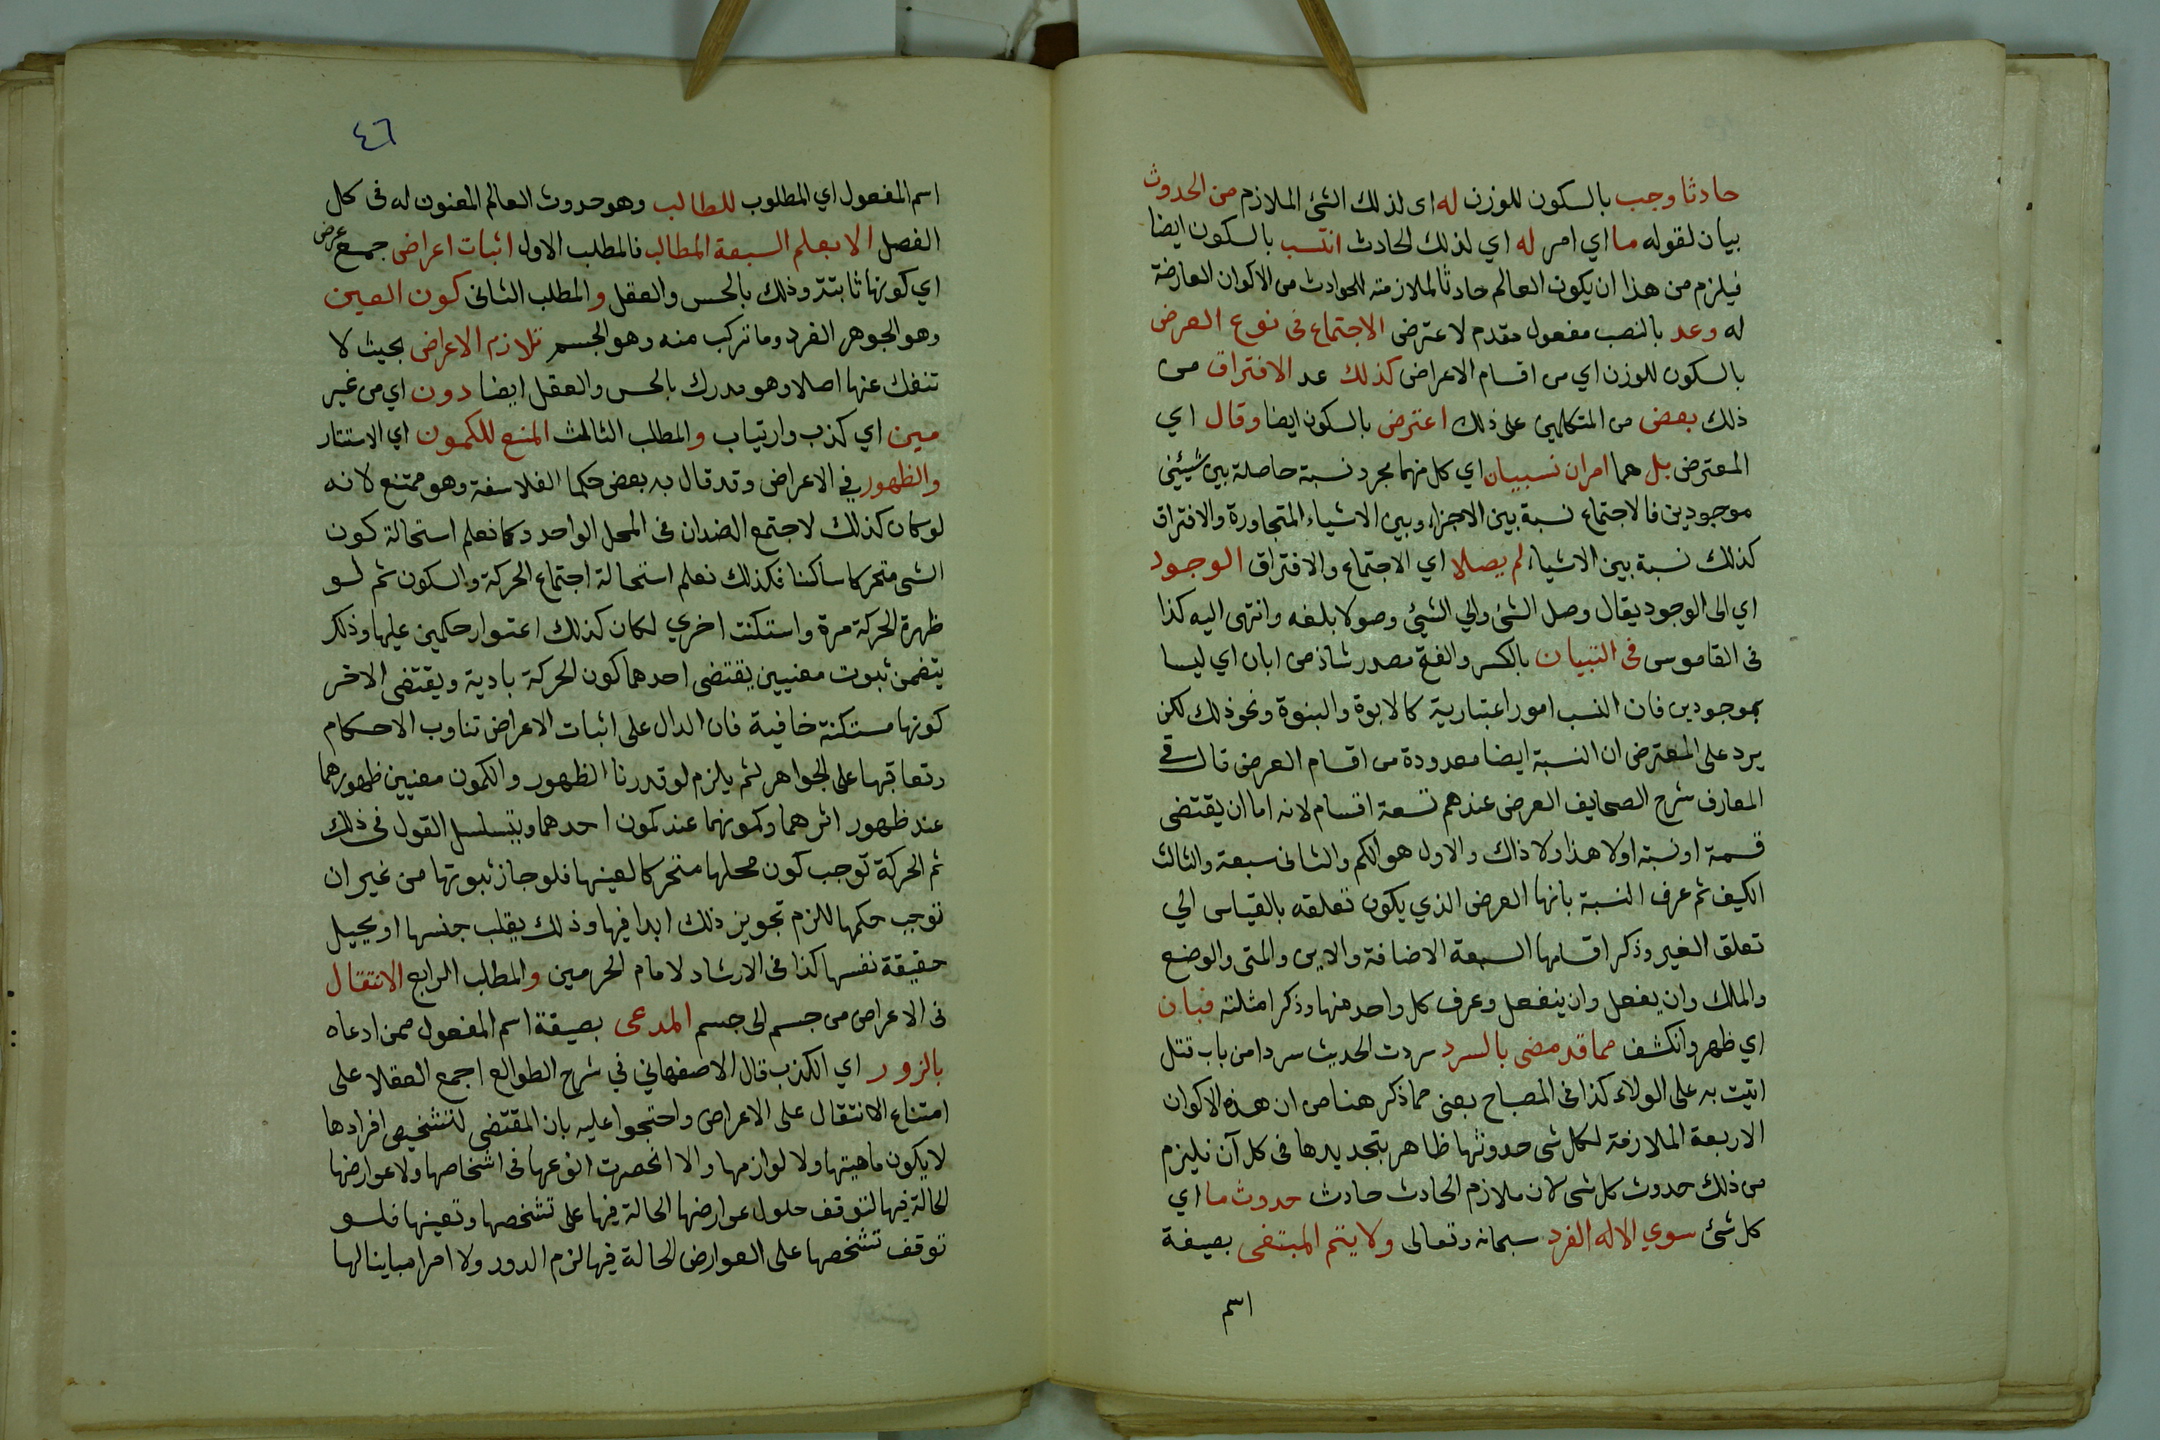 حادثا وجب بالسكون للوزن له اى لذلك الشئ الملازم من الحدوث
بيان لقوله ما اي امر له اي لذلك الحادث انتسب بالسكون ايضا
فيلزم من هذا ان يكون العالم حادثا لملازمته للحوادث من الاكوان العارضة
له وعد بالنصب مفعول مقدم لاعترض الاجتماع في نوع العرض
بالسكون للوزن اي من اقسام الاعراض كذلك عد الافتراق من
ذلك بعض من المتكلمين على ذلك اعترض بالسكون ايضا وقال اي
المعترض بل هما امران نسبيان اي كل منهما مجرد نسبة حاصلة بين شيئين
موجودين فالاجتماع نسبة بين الاجزاء وبين الاشياء المتجاورة والافتراق
كذلك نسبة بين الاشياء لم يصلا اي الاجتماع والافتراق الوجود
اي الى الوجود يقال وصل الشئ والي الشيئ وصولا بلغه وانتهى اليه كذا
في القاموس في التبيان بالكسر والفتح مصدر شاذ من ابان اي ليسا
بموجودين فان النسب امور اعتبارية كالابوة والبنوة ونحو ذلك لكن
يرد على المعترض ان النسبة ايضا معدودة من اقسام العرض قال في
المعارف شرح الصحايف العرض عندهم تسعة اقسام لانه اما ان يقتضى
قسمة او نسبة اولا هذا ولا ذاك والاول هو الكم والثانى سبعة والثالث
الكيف ثم عرف النسبة بانها العرض الذي يكون تعلقه بالقياس الي
تعلق الغير وذكر اقسامها السبعة الاضافة والاين والمتى والوضع
والملك وان يفعل وان ينفعل وعرف كل واحد منها وذكر امثلته فبان
اي ظهر وانكشف مما قد مضى بالسرد سردت الحديث سردا من باب قتل
اتيت به على الولاء كذا في المصباح يعنى مما ذكر هنا من ان هذه الاكوان
الاربعة الملازمة لكل شى حدوثها ظاهر بتجديدها فى كل آن فليزم
من ذلك حدوث كل شى لان ملازم الحادث حادث حدوث ما اي
كل شئ سوي الاله الفرد سبحانه وتعالى ولا يتم المبتغى بصيغة
اسم
٤٦
اسم المفعول اي المطلوب للطالب وهو حدوث العالم المعنون له فى كل
الفصل الا بعلم السبعة المطالب فالمطلب الاول اثبات اعراض جمع عرض
اي كونها ثابتة وذلك بالحس والعقل والمطلب الثانى كون العين
وهو الجوهر الفرد وما تركب منه وهو الجسم تلازم الاعراض بحيث لا
تنفك عنها اصلا وهو مدرك بالحس والعقل ايضا دون اي من غير
مين اي كذب وارتياب والمطلب الثالث المنع للكمون اي الاستتار
والظهور في الاعراض وقد قال به بعض حكما الفلاسفة وهو ممتنع لانه
لو كان كذلك لاجتمع الضدان في المحل الواحد وكما نعلم استحالة كون
الشى متحركا ساكنا فكذلك نعلم استحالة اجتماع الحركة والسكون ثم لو
ظهرة الحركة مرة واستكنت اخري لكان كذلك اعتوار حكمين عليها وذلك
يتضمن ثبوت معنيين يقتضى احدهما كون الحركة بادية ويقتضى الاخر
كونها مستكنة خافية فان الدال على اثبات الاعراض تناوب الاحكام
وتعاقبها على الجواهر ثم يلزم لو قدرنا الظهور والكمون معنيين ظهورهما
عند ظهور اثرهما وكمونهما عند كمون احدهما ويتسلسل القول فى ذلك
ثم الحركة توجب كون محلها متحركا لعينها فلو جاز ثبوتها من غير ان
توجب حكمها للزم تجويز ذلك ابدا فيها وذلك يقلب جنسها او يحيل
حقيقة نفسها كذا فى الارشاد لامام الحرمين والمطلب الرابع الانتقال
فى الاعراض من جسم الى جسم المدعى بصيغة اسم المفعول ممن ادعاه
بالزور اي الكذب قال الاصفهاني في شرح الطوالع اجمع العقلا على
امتناع الانتقال على الاعراض واحتجوا عليه بان المقتضى لتشخيص افرادها
لا يكون ماهيتها ولا لوازمها والا انحصرت انوعها فى اشخاصها ولا عوارضها
الحالة فيها لتوقف حلول عوارضها الحالة فيها على تشخصها وتعينها فلو
توقف تشخصها على العوارض الحالة فيها لزم الدور ولا امرا مباينا لها